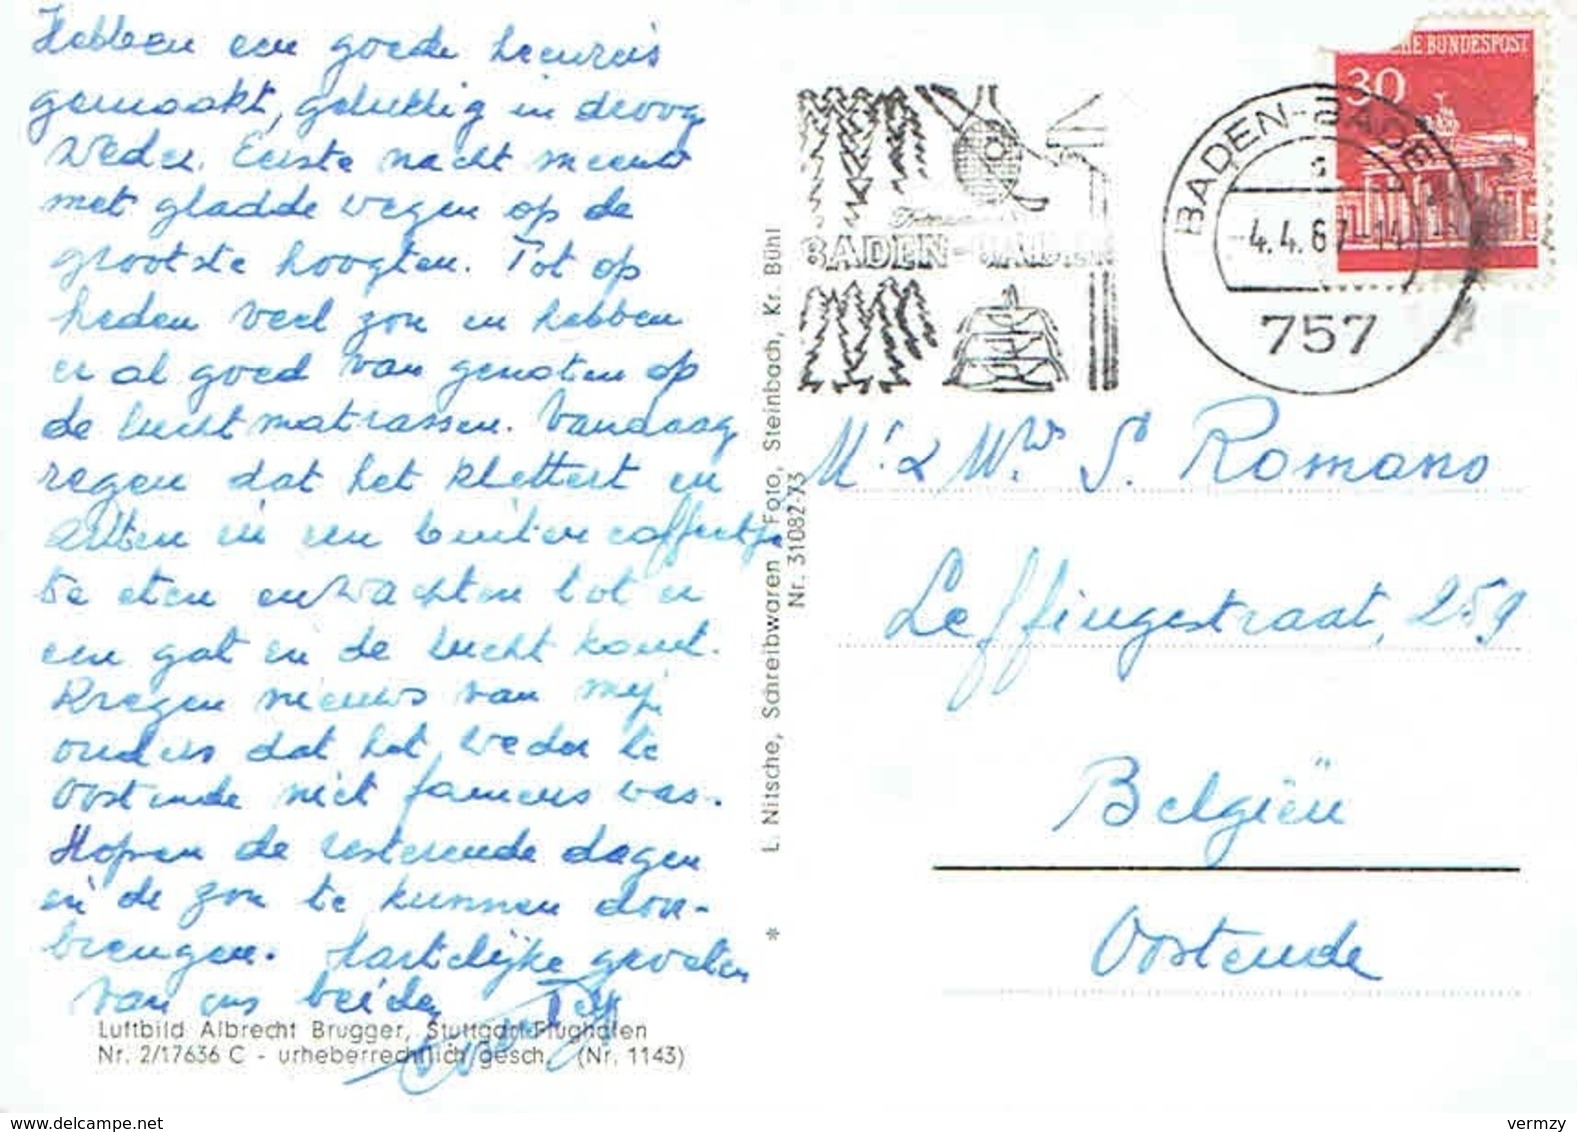 Hebben een goede heenreis
gemaakt, gelukkig in droog
weder. Eerste nacht sneeuw
met gladde wegen op de
grootste hoogten. Tot op
heden veel zon en hebben
er al goed van genoten op
de luchtmatrassen. Vandaag
regen dat het klettert en
zitten in een buiten
te eten en wachten tot er
een gat in de lucht komt.
Kregen nieuws van mijn
ouders dat het weder te
Oostende niet fameus was.
Hopen de resterende dagen
in de zon te kunnen door-
brengen. Hartelijke groeten
van ons beiden
Luftbild Albrecht Brugger, Stuttgart-Flughafen
Nr. 2/17636 C - urheberrechtlich gesch. (Nr. 1143)
* L. Nitsche, Schreibwaren, Foto, Steinbach, Kr. Bühl
Nr. 31082-73
BADEN-BADEN
BADEN-BADEN
-4.4.67-14
757
30
CHE BUNDESPOST
Mr & Mw S. Romano
Leffingestraat, 259
Belgiën
Oostende
© vermzy
www.delcampe.net